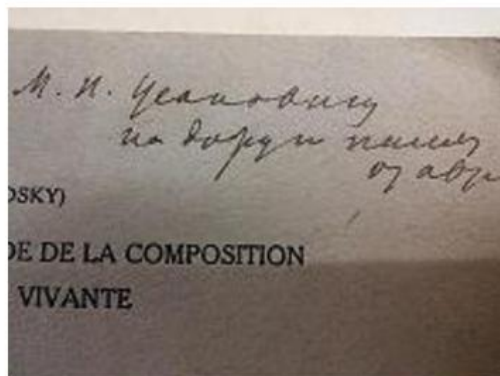 М. И. Усановичу
на добрую память
от авр
OSKY)
DE DE LA COMPOSITION
VIVANTE